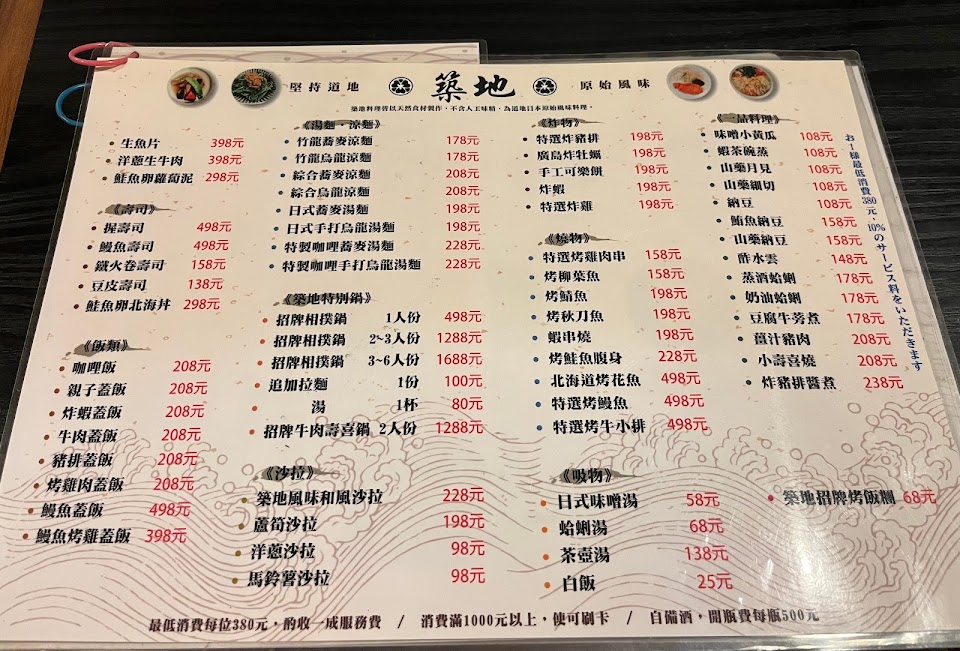 堅持道地
築地
原始風味
築地料理皆以天然食材製作，不含人工味精，為道地日本原始風味料理。
生魚片 398元
洋蔥生牛肉 398元
鮭魚卵蘿蔔泥 298元
《壽司》
握壽司 498元
鰻魚壽司 498元
鐵火卷壽司 158元
豆皮壽司 138元
鮭魚卵北海丼 298元
《飯類》
咖哩飯 208元
親子蓋飯 208元
炸蝦蓋飯 208元
牛肉蓋飯 208元
豬排蓋飯 208元
烤雞肉蓋飯 208元
鰻魚蓋飯 498元
鰻魚烤雞蓋飯 398元
《湯麵·涼麵》
竹籠蕎麥涼麵 178元
竹籠烏龍涼麵 178元
綜合蕎麥涼麵 208元
綜合烏龍涼麵 208元
日式蕎麥湯麵 198元
日式手打烏龍湯麵 198元
特製咖哩蕎麥湯麵 228元
特製咖哩手打烏龍湯麵 228元
《築地特別鍋》
招牌相撲鍋 1人份 498元
招牌相撲鍋 2~3人份 1288元
招牌相撲鍋 3~6人份 1688元
追加拉麵 1份 100元
湯 1杯 80元
招牌牛肉壽喜鍋 2人份 1288元
《沙拉》
築地風味和風沙拉 228元
蘆筍沙拉 198元
洋蔥沙拉 98元
馬鈴薯沙拉 98元
《炸物》
特選炸豬排 198元
廣島炸牡蠣 198元
手工可樂餅 198元
炸蝦 198元
特選炸雞 198元
《燒物》
特選烤雞肉串 158元
烤柳葉魚 158元
烤鯖魚 198元
烤秋刀魚 198元
蝦串燒 198元
烤鮭魚腹身 228元
北海道烤花魚 498元
特選烤鰻魚 498元
特選烤牛小排 498元
《吸物》
日式味噌湯 58元
蛤蜊湯 68元
茶壺湯 138元
白飯 25元
《一品料理》
味噌小黃瓜 108元
蝦茶碗蒸 108元
山藥月見 108元
山藥細切 108元
納豆 108元
鮪魚納豆 158元
山藥納豆 158元
酢水雲 148元
蒸酒蛤蜊 178元
奶油蛤蜊 178元
豆腐牛蒡煮 178元
薑汁豬肉 208元
小壽喜燒 208元
炸豬排醬煮 238元
築地招牌烤飯糰 68元
お1様最低消費380元，10%のサービス料をいただきます
最低消費每位380元，酌收一成服務費 / 消費滿1000元以上，便可刷卡 / 自備酒，開瓶費每瓶500元